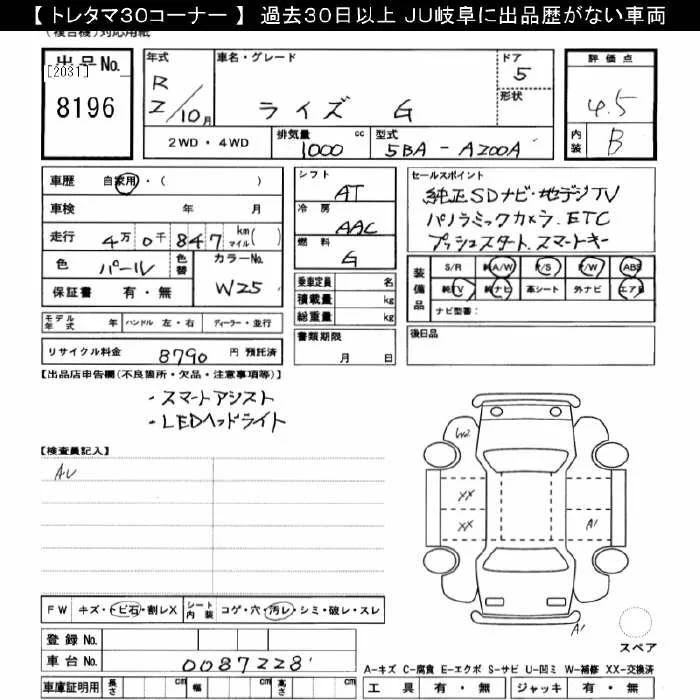 【 トレタマ30コーナー 】 過去30日以上 JU岐阜に出品歴がない車両
(複合機)対応用紙
出品No. [2031]
8196
年式 R 2/10月
車名・グレード ライズ G
ドア 5
形状
評価点 4.5
内装 B
2WD・4WD
排気量 1000 cc
型式 5BA - A200A
車歴 自家用・( )
車検 年 月
走行 4万0千847 km マイル( )
色 パール
色替
カラーNo. W25
保証書 有・無
シフト AT
冷房 AAC
燃料 G
乗車定員 名
積載量 kg
総重量 kg
セールスポイント
純正SDナビ・地デジTV
パノラミックカメラ. ETC
プッシュスタート.スマートキー
装備品
S/R 純A/W P/S P/W ABS
純TV 純ナビ 革シート 外ナビ エアB
ナビ型番:
モデル年式 年 ハンドル 左・右 ディーラー・並行
リサイクル料金 8790 円 預託済
書類期限 月 日
後日品
【出品店申告欄(不良箇所・欠品・注意事項等)】
・スマートアシスト
・LEDヘッドライト
【検査員記入】
A・U
W2
XX
XX
A1
A1
スペア
FW キズ・トビ石・割レX
シート内装 コゲ・穴・汚レ・シミ・破レ・スレ
登録No.
車台No. 0087228
A-キズ C-腐食 E-エクボ S-サビ U-凹ミ W-補修 XX-交換済
車庫証明用 長さ cm 幅 cm 高さ cm
工具 有・無 ジャッキ 有・無